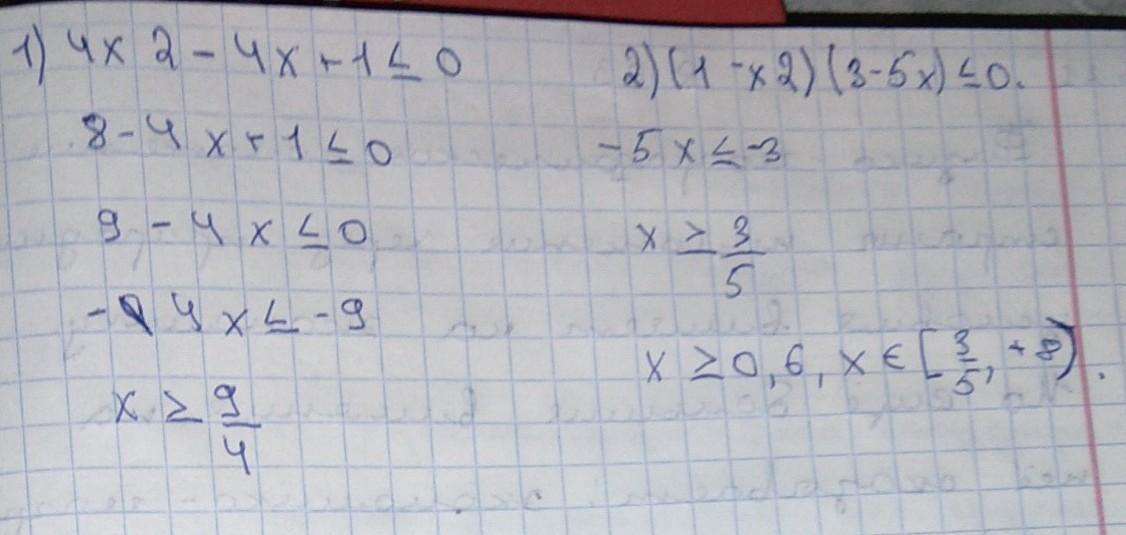 1) 4x 2 - 4x + 1 ≤ 0
8 - 4x + 1 ≤ 0
9 - 4x ≤ 0
- 4x ≤ -9
x ≥ 9/4
2) (1 - x2) (3-5x) ≤ 0.
-5x ≤ -3
x ≥ 3/5
x ≥ 0,6, x ∈ [3/5, +8).